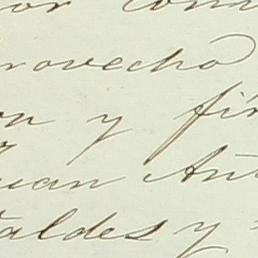 or con
rovecho
on y fir
Juan Ant
Valdes y